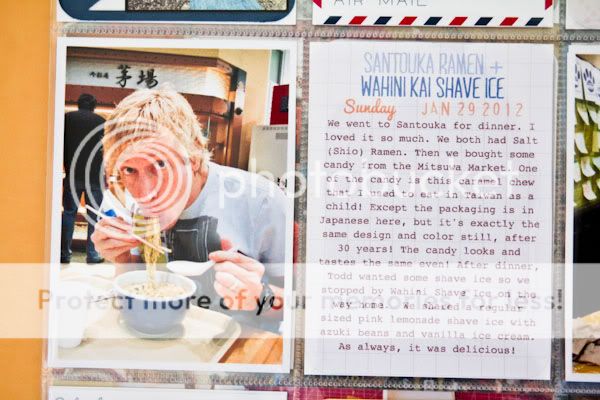 AIR MAIL
茅場
SANTOUKA RAMEN +
WAHINI KAI SHAVE ICE
Sunday JAN 29 2012
We went to Santouka for dinner. I
loved it so much. We both had Salt
(Shio) Ramen. Then we bought some
candy from the Mitsuwa Market. One
of the candy is this caramel chew
that I used to eat in Taiwan as a
child! Except the packaging is in
Japanese here, but it's exactly the
same design and color still, after
30 years! The candy looks and
tastes the same even! After dinner,
Todd wanted some shave ice so we
stopped by Wahini Shave Ice on the
way home. We shared a regular
sized pink lemonade shave ice with
azuki beans and vanilla ice cream.
As always, it was delicious!
photobucket
Protect more of your memories for less!